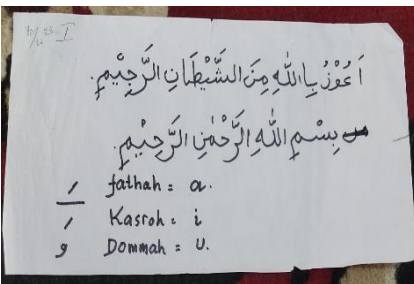 أَعُوْذُ بِاللّٰهِ مِنَ الشَّيْطَانِ الرَّجِيْمِ.
بِسْمِ اللّٰهِ الرَّحْمٰنِ الرَّحِيْمِ.
fathah = a.
Kasroh = i
و Dommah = U.